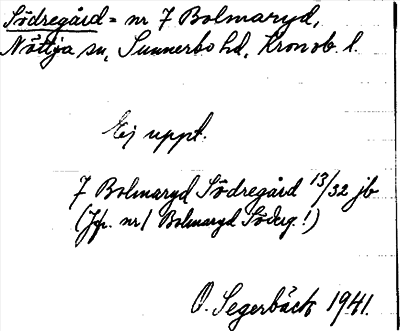 Södregård = nr 7 Bolmaryd,
Nöttja sn, Sunnerbo hd, Kronob. l.
Ej uppt.
7 Bolmaryd Södregård 13/32 jb
(Jfr. nr 1 Bolmaryd Söderg.!)
O. Segerbäck 1941.